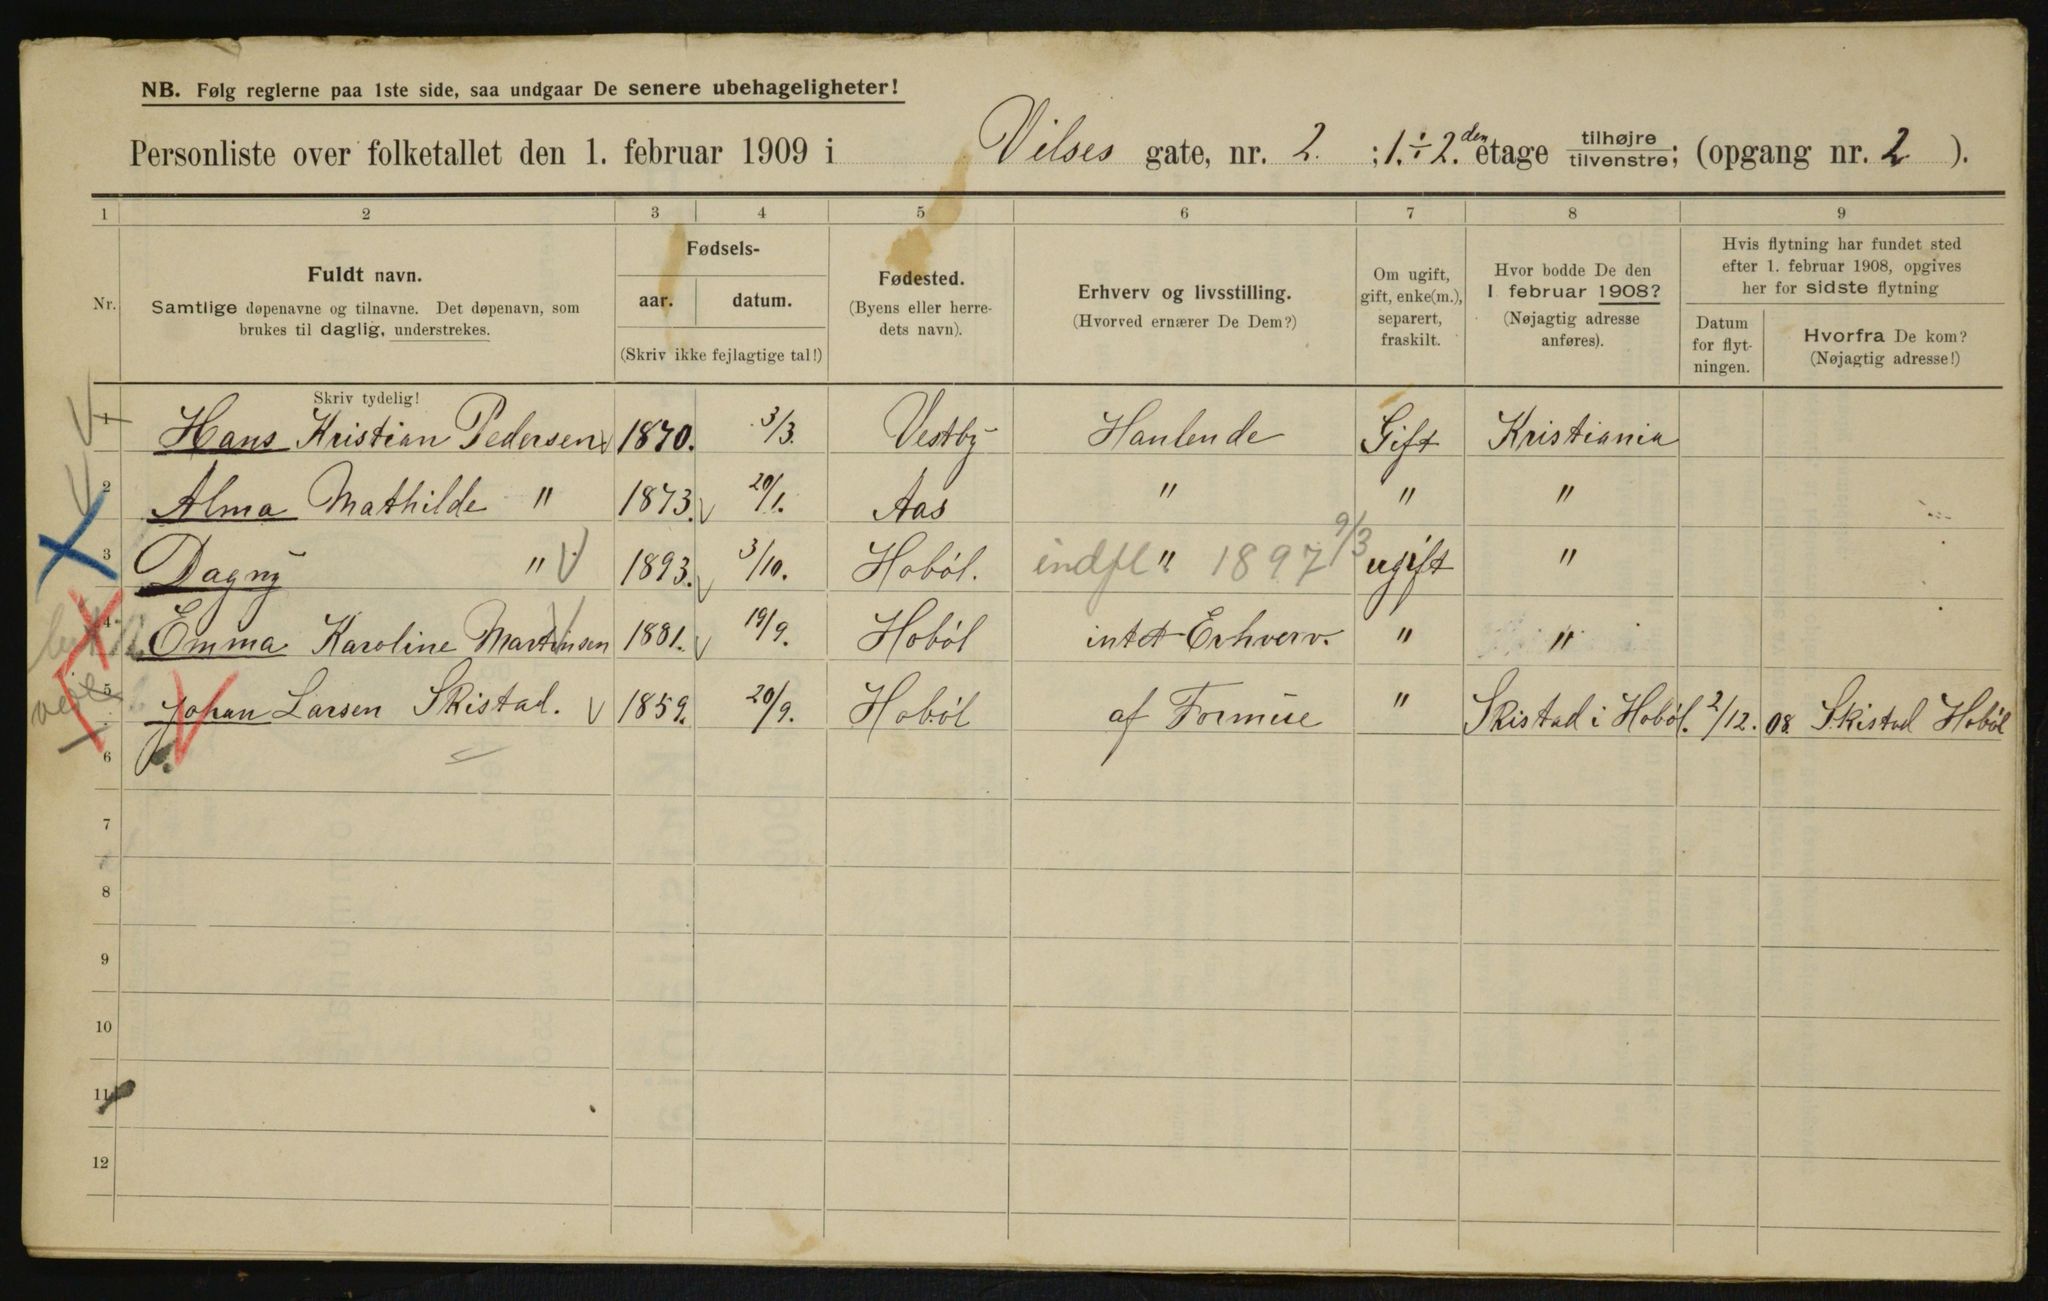 NB. Følg reglerne paa 1ste side, saa undgaar De senere ubehageligheter!
Personliste over folketallet den 1. februar 1909 i Vilses gate, nr. 2. ; 1. ÷ 2. den etage tilhøjre / tilvenstre; (opgang nr. 2 ).
1 2 3 4 5 6 7 8 9
Nr.
Fuldt navn.
Samtlige døpenavne og tilnavne. Det døpenavn, som
brukes til daglig, understrekes.
Fødsels-
aar. datum.
(Skriv ikke fejlagtige tal!)
Fødested.
(Byens eller herre-
dets navn).
Erhverv og livsstilling.
(Hvorved ernærer De Dem?)
Om ugift,
gift, enke(m.),
separert,
fraskilt.
Hvor bodde De den
1 februar 1908?
(Nøjagtig adresse
anføres).
Hvis flytning har fundet sted
efter 1. februar 1908, opgives
her for sidste flytning
Datum
for flyt-
ningen.
Hvorfra De kom?
(Nøjagtig adresse!)
Skriv tydelig!
1 Hans Kristian Pedersen 1870. 3/3. Vestby Hanlende Gift Kristiania
2 Alma Mathilde " 1873. 20/1. Aas " " "
3 Dagny " 1893. 3/10. Hobøl. indfl " 1897 9/3 ugift "
4 Emma Karoline Martinsen 1881. 19/9. Hobøl intet Erhverv. " "
5 Johan Larsen Skistad. 1859. 20/9. Hobøl af Formue " Skistad i Hobøl. 2/12. 08. Skistad Hobøl
6
7
8
9
10
11
12